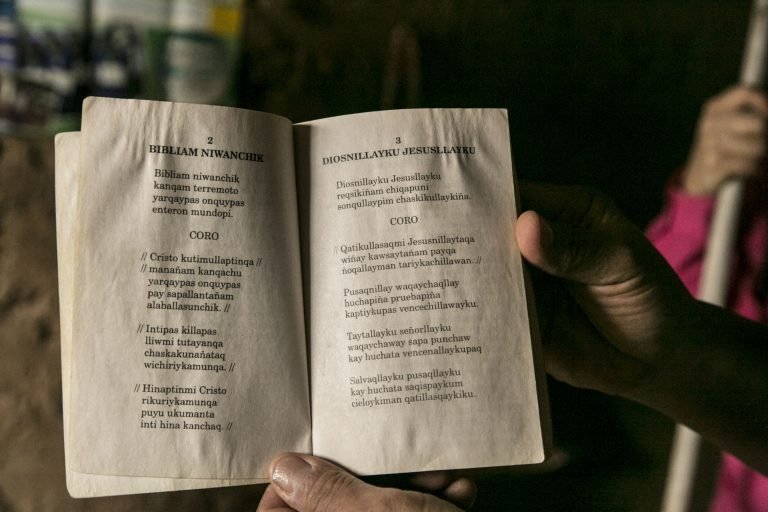 2
BIBLIAM NIWANCHIK
Bibliam niwanchik
kanqam terremoto
yarqaypas onquypas
enteron mundopi.
CORO
// Cristo kutimullaptinqa //
// manañam kanqachu
yarqaypas onquypas
pay sapallantañam
alaballasunchik. //
// Intipas killapas
lliwmi tutayanqa
chaskakunañataq
wichiriykamunqa. //
// Hinaptinmi Cristo
rikuriykamunqa
puyu ukumanta
inti hina kanchaq. //
3
DIOSNILLAYKU JESUSLLAYKU
Diosnillayku Jesusllayku
reqsikiñam chiqapuni
sonqullaypim chaskikullaykiña.
CORO
// Qatikullasaqmi Jesusnillaytaqa
wiñay kawsaytañam payqa
ñoqallayman tariykachillawan. //
Pusaqnillay waqaychaqllay
huchapiña pruebapiña
kaptiykupas vencechillawayku.
Taytallayku señorllayku
waqaychaway sapa punchaw
kay huchata vencenallaykupaq
Salvaqllayku pusaqllayku
kay huchata saqispaykum
cieloykiman qatillasqaykiku.